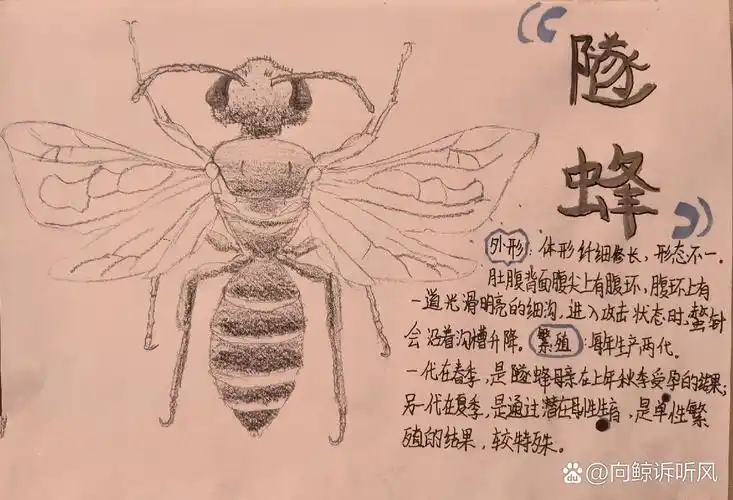 “隧蜂”
外形：体形纤细修长，形态不一。
肚腹背面腹尖上有腹环，腹环上有
一道光滑明亮的细沟，进入攻击状态时，螫针
会沿着沟槽升降。繁殖：每年生产两代。
一代在春季，是隧蜂母亲在上年秋季受孕的结果；
另一代在夏季，是通过潜在卵生生育，是单性繁
殖的结果，较特殊。
@向鲸诉听风